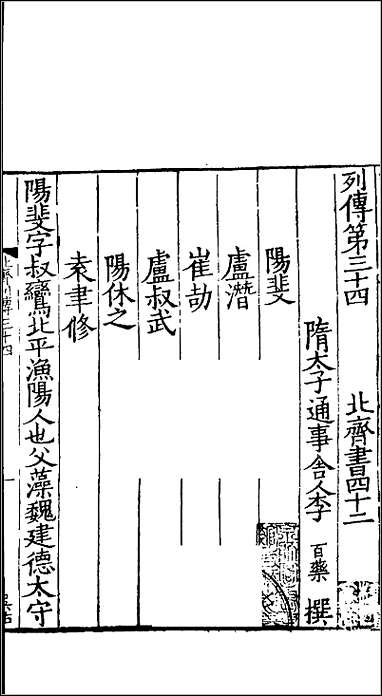 列傳第三十四 北齊書四十二
隋太子通事舍人李 百藥 撰
陽斐
盧潛
崔劼
盧叔武
陽休之
袁聿修
陽斐字叔鸞北平漁陽人也父藻魏建德太守
北齊列傳三十四 一